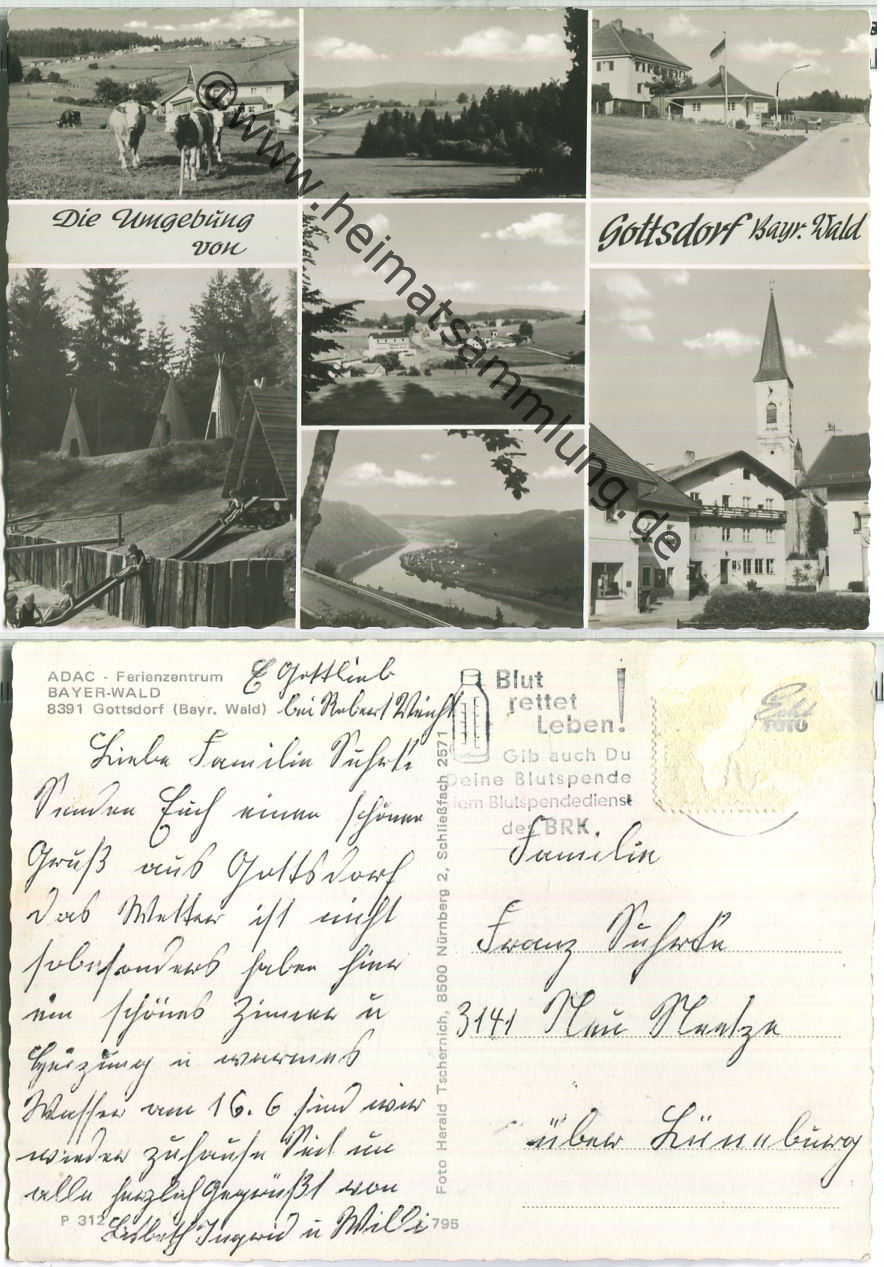 Die Umgebung
von
Gottsdorf Bayr. Wald
@www.heimatsammlung.de
ADAC - Ferienzentrum
BAYER-WALD
8391 Gottsdorf (Bayr. Wald)
E Gottlieb
bei Robert Weicht
Liebe Familie Suhrke
Senden Euch einen schönen
Gruß aus Gottsdorf
das Wetter ist nicht
so besonders haben hier
ein schönes Zimmer u
Heizung u warmes
Wasser am 16. 6 sind wir
wieder zuhause Seit un
alle herzlich Gegrüßt von
Lisbeth Ingrid u Willi
P 312
795
Foto Harald Tschernich, 8500 Nürnberg 2, Schließfach 2571
Blut
rettet
Leben!
Gib auch Du
Deine Blutspende
dem Blutspendedienst
des BRK.
Echt
FOTO
Familie
Franz Suhrke
3141 Neu Neetze
über Lüneburg